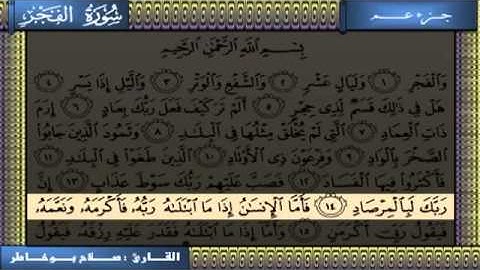 سُورَةُ الفَجْرِ
جزء عم
بِسْمِ اللَّهِ الرَّحْمَٰنِ الرَّحِيمِ
وَالْفَجْرِ ١ وَلَيَالٍ عَشْرٍ ٢ وَالشَّفْعِ وَالْوَتْرِ ٣ وَاللَّيْلِ إِذَا يَسْرِ ٤
هَلْ فِي ذَٰلِكَ قَسَمٌ لِّذِي حِجْرٍ ٥ أَلَمْ تَرَ كَيْفَ فَعَلَ رَبُّكَ بِعَادٍ ٦ إِرَمَ
ذَاتِ الْعِمَادِ ٧ الَّتِي لَمْ يُخْلَقْ مِثْلُهَا فِي الْبِلَادِ ٨ وَثَمُودَ الَّذِينَ جَابُوا
الصَّخْرَ بِالْوَادِ ٩ وَفِرْعَوْنَ ذِي الْأَوْتَادِ ١٠ الَّذِينَ طَغَوْا فِي الْبِلَادِ ١١
فَأَكْثَرُوا فِيهَا الْفَسَادَ ١٢ فَصَبَّ عَلَيْهِمْ رَبُّكَ سَوْطَ عَذَابٍ ١٣ إِنَّ
رَبَّكَ لَبِالْمِرْصَادِ ١٤ فَأَمَّا الْإِنسَٰنُ إِذَا مَا ابْتَلَىٰهُ رَبُّهُ فَأَكْرَمَهُ وَنَعَّمَهُ
فَيَقُولُ رَبِّي أَكْرَمَنِ ١٥ وَأَمَّا إِذَا مَا ابْتَلَىٰهُ فَقَدَرَ عَلَيْهِ رِزْقَهُ فَيَقُولُ
القارئ : صلاح بوخاطر